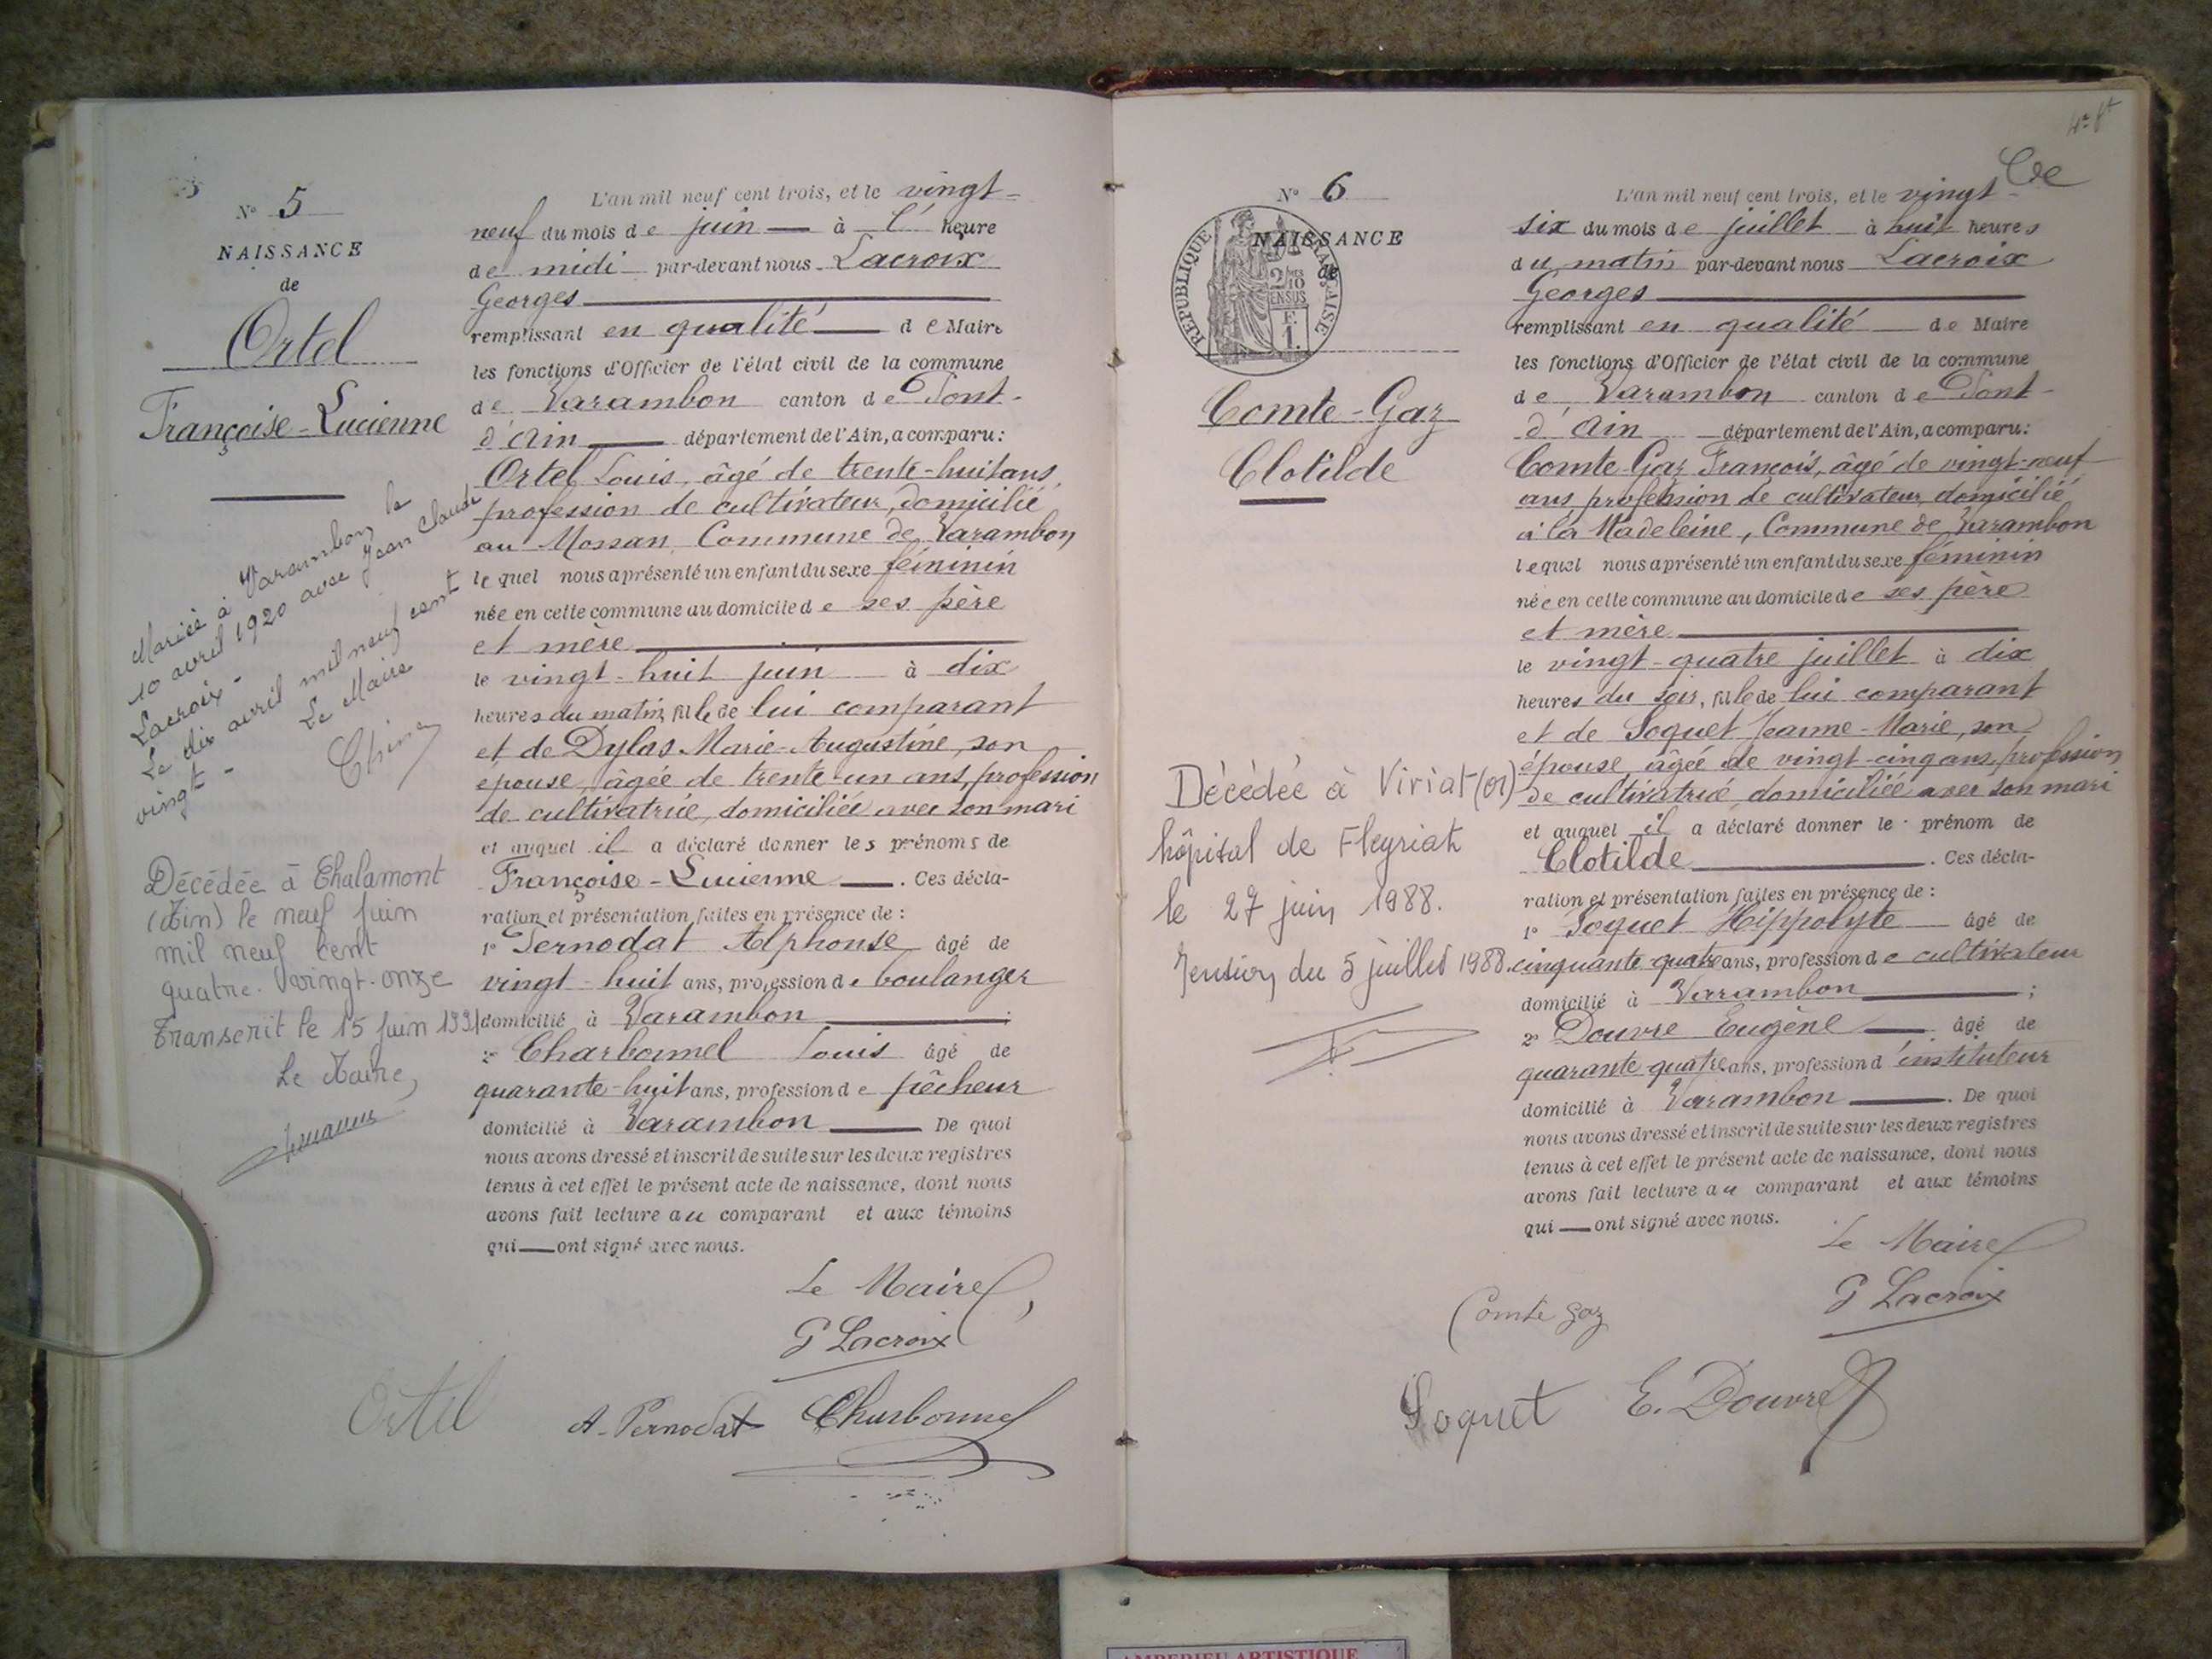 N° 5
NAISSANCE
de
Ortel
Françoise-Lucienne
Mariée à Varambon le
10 avril 1920 avec Jean Claude
Lacroix-
Le dix avril mil neuf cent
vingt-
Le Maire
Décédée à Chalamont
(Ain) le neuf juin
mil neuf cent
quatre-vingt-onze
Transcrit le 15 juin 1991
Le Maire,
L'an mil neuf cent trois, et le vingt-
neuf du mois de juin à l' heure
de midi par-devant nous Lacroix
Georges
remplissant en qualité de Maire
les fonctions d'Officier de l'état civil de la commune
de Varambon canton de Pont-
d'Ain département de l'Ain, a comparu:
Ortel Louis, âgé de trente-huit ans,
profession de cultivateur, domicilié
au Mossan, Commune de Varambon
lequel nous a présenté un enfant du sexe féininin
née en cette commune au domicile de ses père
et mère
le vingt-huit juin à dix
heures du matin, fille de lui comparant
et de Dylas Marie-Augustine, son
epouse, âgée de trente-un ans, profession
de cultivatrice, domiciliée avec son mari
et auquel il a déclaré donner les prénoms de
Françoise-Lucienne. Ces décla-
ration et présentation faites en présence de:
1° Pernodat Alphonse âgé de
vingt-huit ans, profession de boulanger
domicilié à Varambon;
2° Charbonnel Louis âgé de
quarante-huit ans, profession de pêcheur
domicilié à Varambon De quoi
nous avons dressé et inscrit de suite sur les deux registres
tenus à cet effet le présent acte de naissance, dont nous
avons fait lecture au comparant et aux témoins
qui ont signé avec nous.
Le Maire,
G Lacroix
Ortel A. Pernodat Charbonnel
N° 6
NAISSANCE
de
RÉPUBLIQUE FRANÇAISE
2/10
EN SUS
F.
1.
Comte-Gaz
Clotilde
Décédée à Viriat (01)
hôpital de Fleyriat
le 27 juin 1988.
Mention du 5 juillet 1988.
L'an mil neuf cent trois, et le vingt-
six du mois de juillet à huit heures
du matin par-devant nous Lacroix
Georges
remplissant en qualité de Maire
les fonctions d'Officier de l'état civil de la commune
de Varambon canton de Pont-
d'Ain département de l'Ain, a comparu:
Comte-Gaz François, âgé de vingt-neuf
ans, profession de cultivateur, domicilié
à la Madeleine, Commune de Varambon
lequel nous a présenté un enfant du sexe féminin
née en cette commune au domicile de ses père
et mère
le vingt-quatre juillet à dix
heures du soir, fille de lui comparant
et de Soquet Jeanne-Marie, son
épouse âgée de vingt-cinq ans, profession
de cultivatrice domiciliée avec son mari
et auquel il a déclaré donner le prénom de
Clotilde. Ces décla-
ration et présentation faites en présence de:
1° Soquet Hippolyte âgé de
cinquante-quatre ans, profession de cultivateur
domicilié à Varambon;
2° Douvre Eugène âgé de
quarante quatre ans, profession d'instituteur
domicilié à Varambon. De quoi
nous avons dressé et inscrit de suite sur les deux registres
tenus à cet effet le présent acte de naissance, dont nous
avons fait lecture au comparant et aux témoins
qui ont signé avec nous.
Le Maire
G Lacroix
Comte gaz
Soquet E. Douvre
AMBERIEU ARTISTIQUE